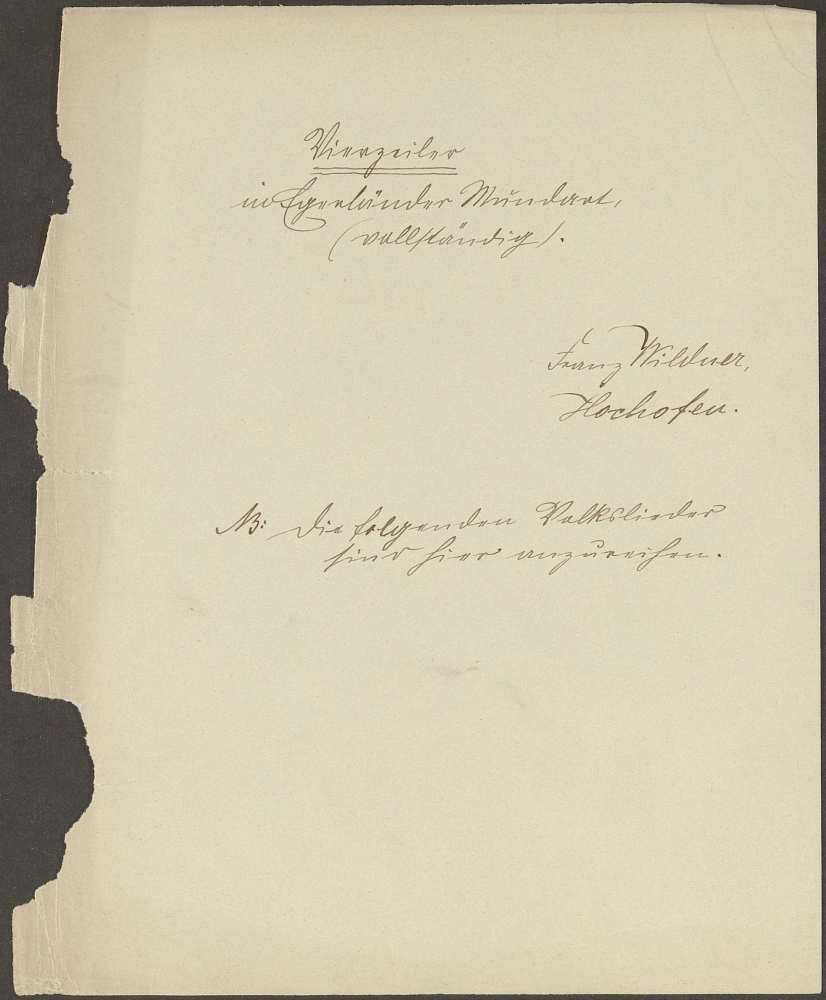 Vierzeiler
in Egerländer Mundart,
(vollständig).
Franz Wildner,
Hochofen.
NB: Die folgenden Volkslieder
sind hier anzureihen.